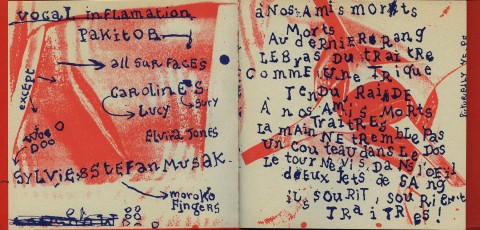 vocal inflamation
PAKITO B
all surfaces
EXCEPT
CAROLINE S
Lucy
Suzy
Elvin Jones
Woo
Doo
SYLVIE & STEFAN MUSAK
moroko
Fingers
à NOS AMIS MORTS
Morts
AU dERNIER RANG
LE BRAS DU TRAITRE
COMME UNE TRIQUE
TENDU RAIDE
À NOS AMIS MORTS
TRAITRES
LA MAIN NE TREMBLE PAS
UN COUTEAU dANS LE DOS
LE TOURNEVIS DANS L'OEIL
dEUX JETS DE SANG
ILS SOURIT, SOURIENT
TRAITRES!